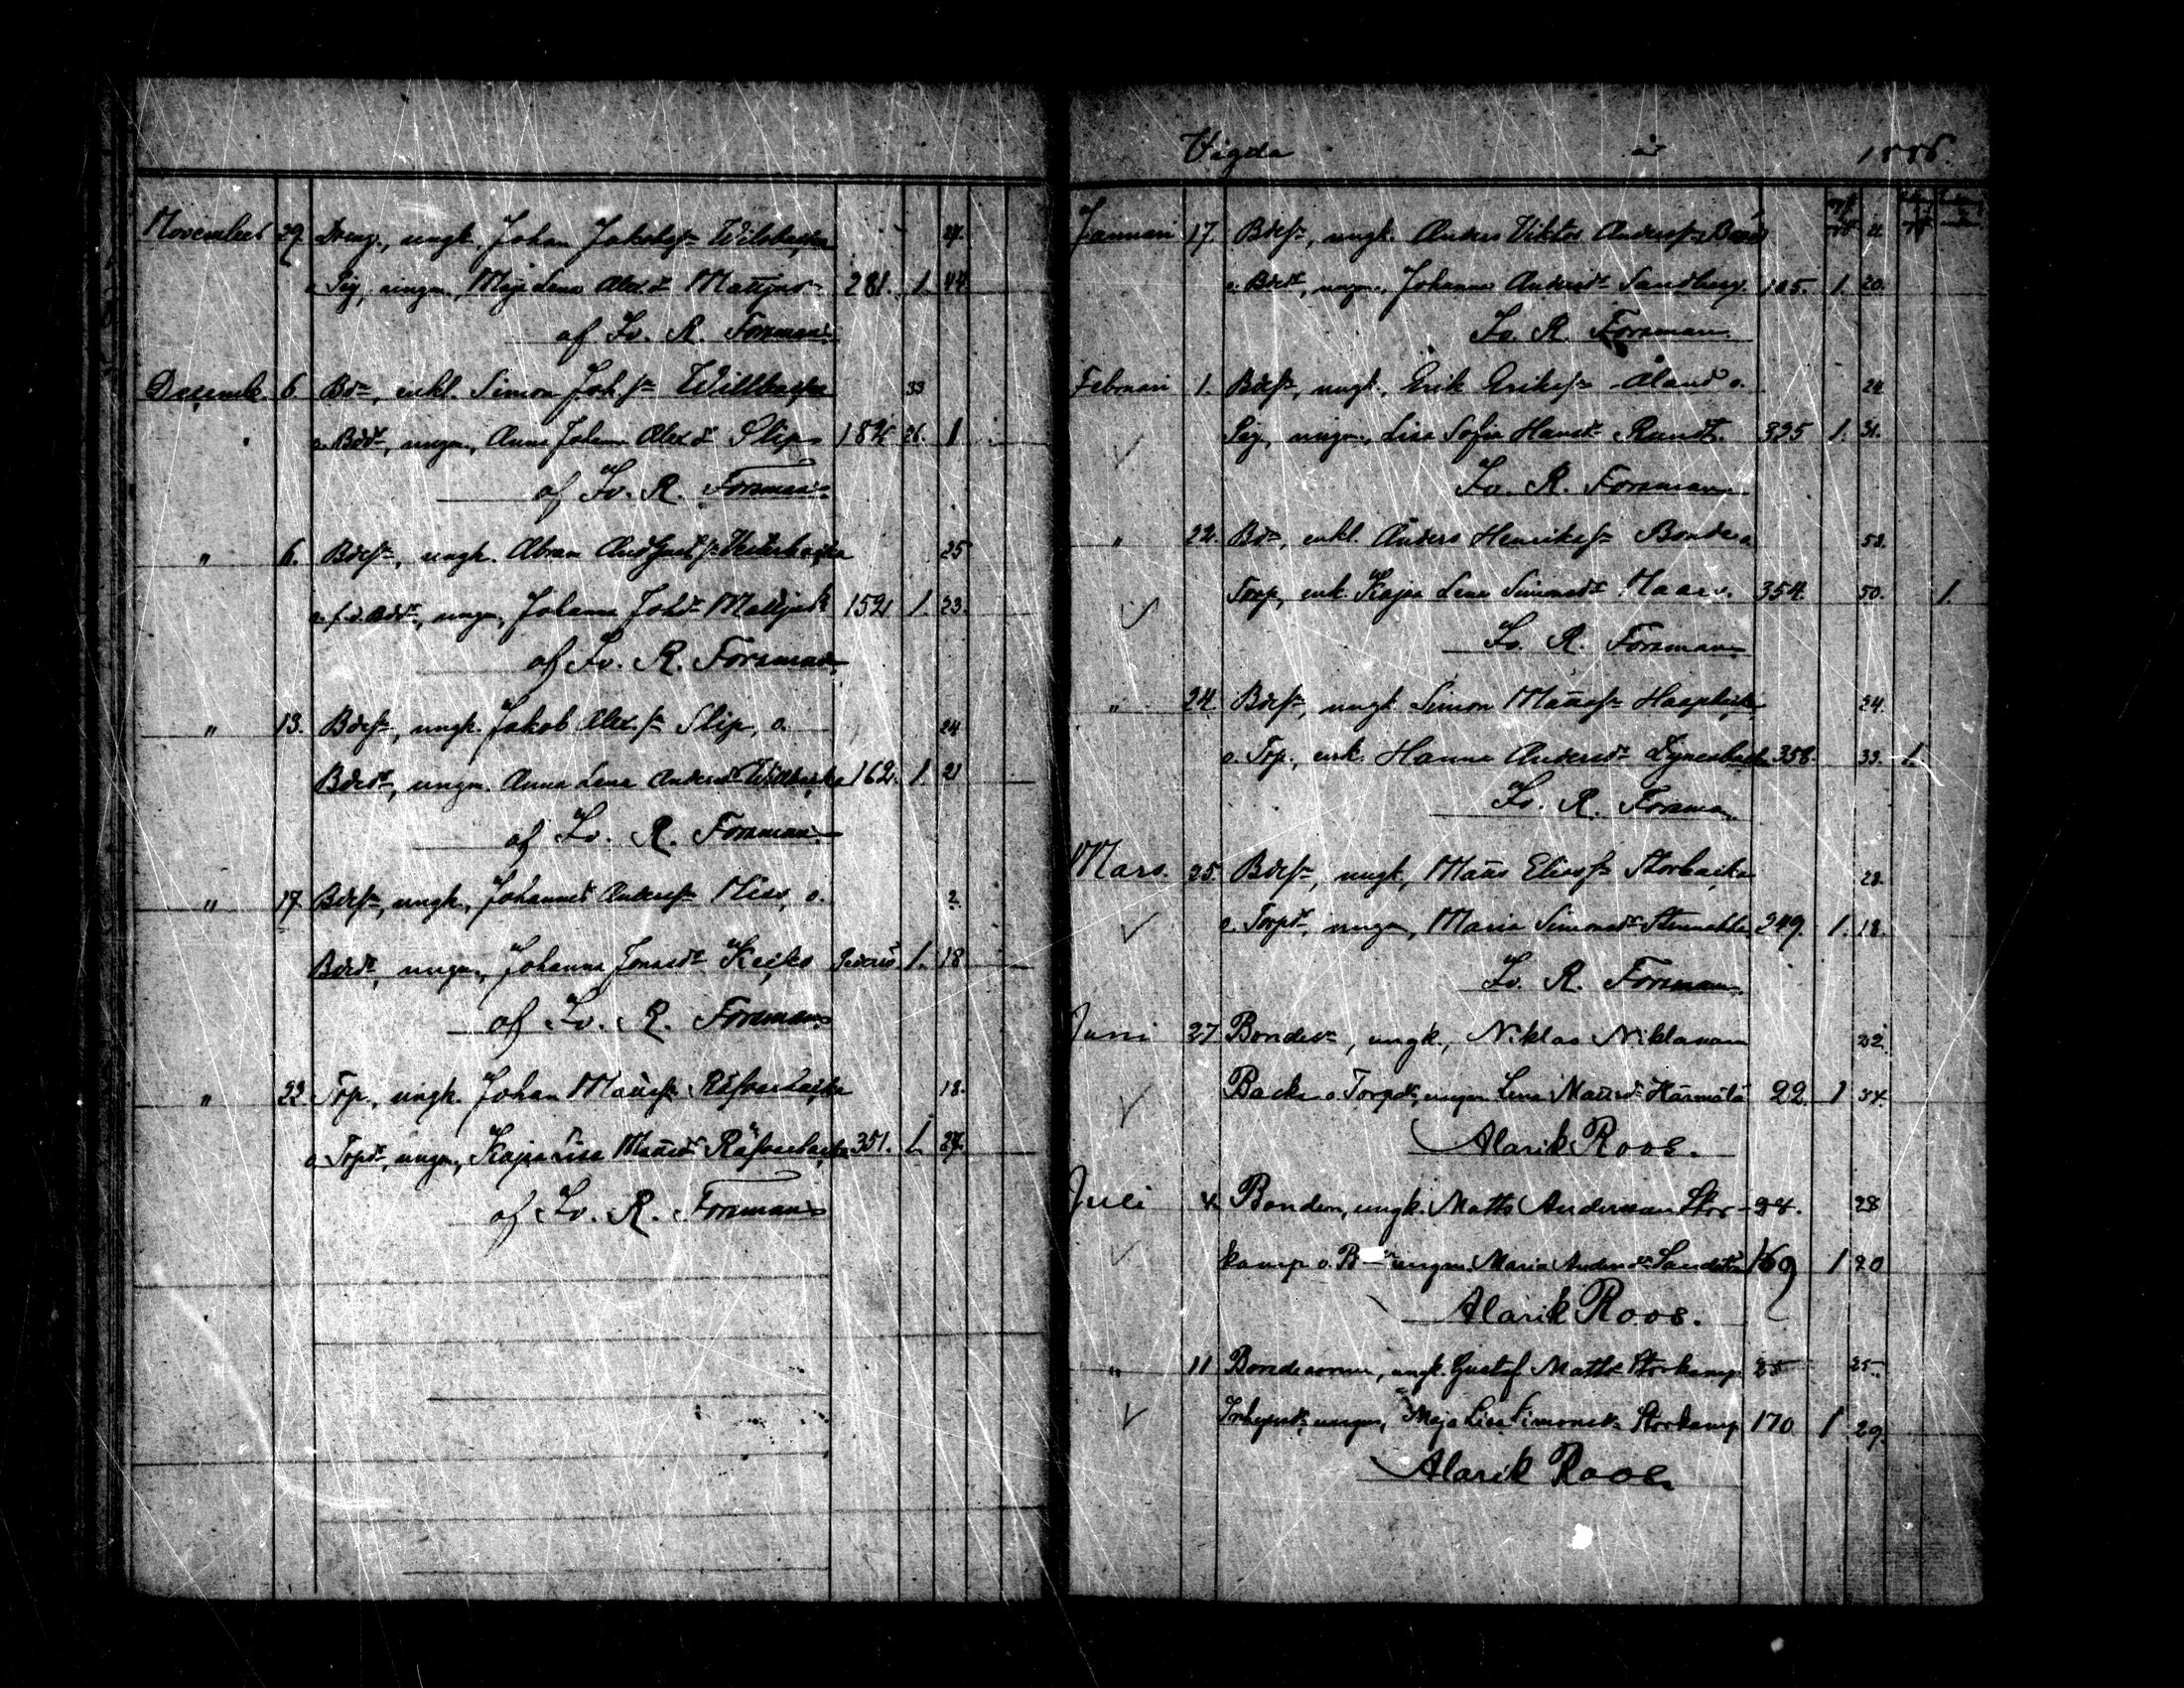 November 29. Dreng, ungk. Johan Jakobss:n Wilobacka 27.
o. Pig, ungm, Maja Lena Alex.d:r Mattjus 281. 1. 44
af Fr. R. Forsman.
Decemb. 6. Bd:n, enkl. Simon Joh.s:n Willbacka 33
o. Bdd:r, ungm, Anna Johanna Alex.d:r Slip 182 26. 1
af Fr. R. Forsman.
" 6. Bdes:n, ungk. Abram And. Gust.s:n Westerbacka 25
o. f.d. Bdd:r, ungm, Johanna Joh.d:r Mattjus 152 1. 23.
af Fr. R. Forsman.
" 13. Bdes:n, ungk. Jakob Alex.s:n Slip, o. 24
Bded:r, ungm. Anna Lena Andersd:r Willbacka 162. 1. 21
af Fr. R. Forsman.
" 17 Bdes:n, ungk., Johannes Anderss:n o. 2
Bded:r, ungm, Johanna Jonasd:r Keiko 1. 18
af Fr. R. Forsman
" 22. Trp., ungk. Johan Matts:n Räfvarbacka 18.
o. Trpd:r, ungm, Kajsa Lisa Mattsd:r Räfvarbacka 351. 1. 27.
af Fr. R. Forsman
Vigda år 1886.
Januari 17. Bdes:n, ungk. Anders Viktor Anderss:n 21
o. Bded:r, ungm., Johanna Andersd:r Sandberg. 105. 1. 20.
Fr. R. Forsman.
Februari 1. Bdes:n, ungk. Erik Erikss:n Åland o. 24
Pig, ungm., Lisa Sofia Hansd:r Rundt. 395 1. 31.
Fr. R. Forsman.
" 22. Bd:n, enkl. Anders Henrikss:n Bonde o. 53.
Torp, enk. Kajsa Lena Simonsd:r Haars. 354. 50. 1.
Fr. R. Forsman
" 24. Bdes:n, ungk. Simon Matts:n 24.
o. Trp., enk. Hanna Andersd:r Dynesbacka 358. 33. 1.
Fr. R. Forsman
Mars. 25. Bdes:n, ungk., Matts Eliass:n Storbacka 28.
o. Torpd:r, ungm, Maria Simonsd:r 249. 1. 18.
Fr. R. Forsman
Juni 27 Bondes:n, ungk., Niklas Niklasson 22.
Backa o. Torpd:r, ungm. Lena Mattsd:r Härmälä 22. 1 34.
Alarik Roos.
Juli 4. Bonden, ungk. Matts Andersson Stor- 24. 28
kamp o. B ungm. Maria Andersd:r 169 1 20
Alarik Roos.
" 11 Bondesonen, ungk. Gustaf Matts:n Storkamp 25 25
Inhysesd:r, ungm, Maja Lisa Simonsd:r Storkamp 170 1 29.
Alarik Roos.